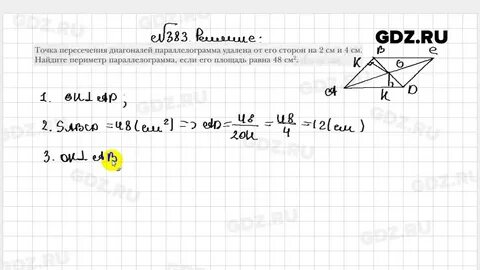 GDZ.RU
№383 Решение:
Точка пересечения диагоналей параллелограмма удалена от его сторон на 2 см и 4 см.
Найдите периметр параллелограмма, если его площадь равна 48 см².
B C
K O
A H D
1. OH⊥AD,
2. SABCD = 48 (см²) => AD = 48/2OH = 48/4 = 12 (см)
3. OK⊥AB,
GDZ.RU
GDZ.RU
GDZ.RU